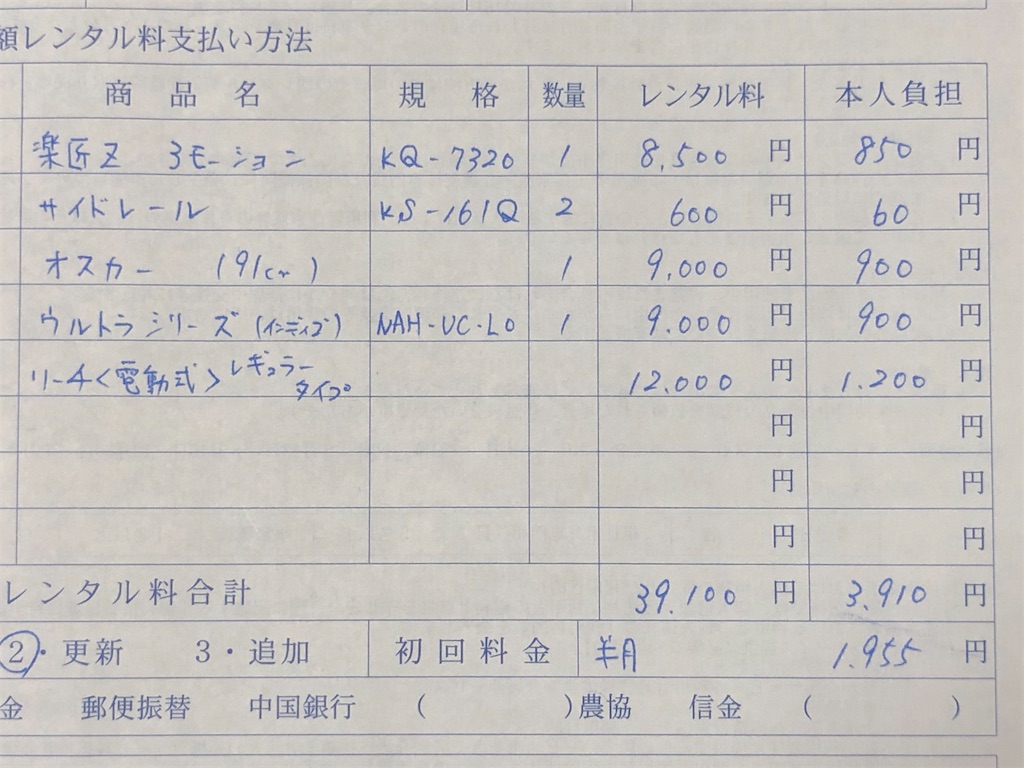 額レンタル料支払い方法
商品名 規格 数量 レンタル料 本人負担
楽匠Z 3モーション KQ-7320 1 8,500 円 850 円
サイドレール KS-161Q 2 600 円 60 円
オスカー (91cm) 1 9,000 円 900 円
ウルトラシリーズ(インディゴ) NAH-UC-LO 1 9.000 円 900 円
リーチ<電動式>レギュラータイプ 12.000 円 1.200 円
円 円
円 円
円 円
レンタル料合計 39.100 円 3.910 円
2・更新 3・追加 初回料金 半月 1.955 円
金 郵便振替 中国銀行 ( )農協 信金 ( )